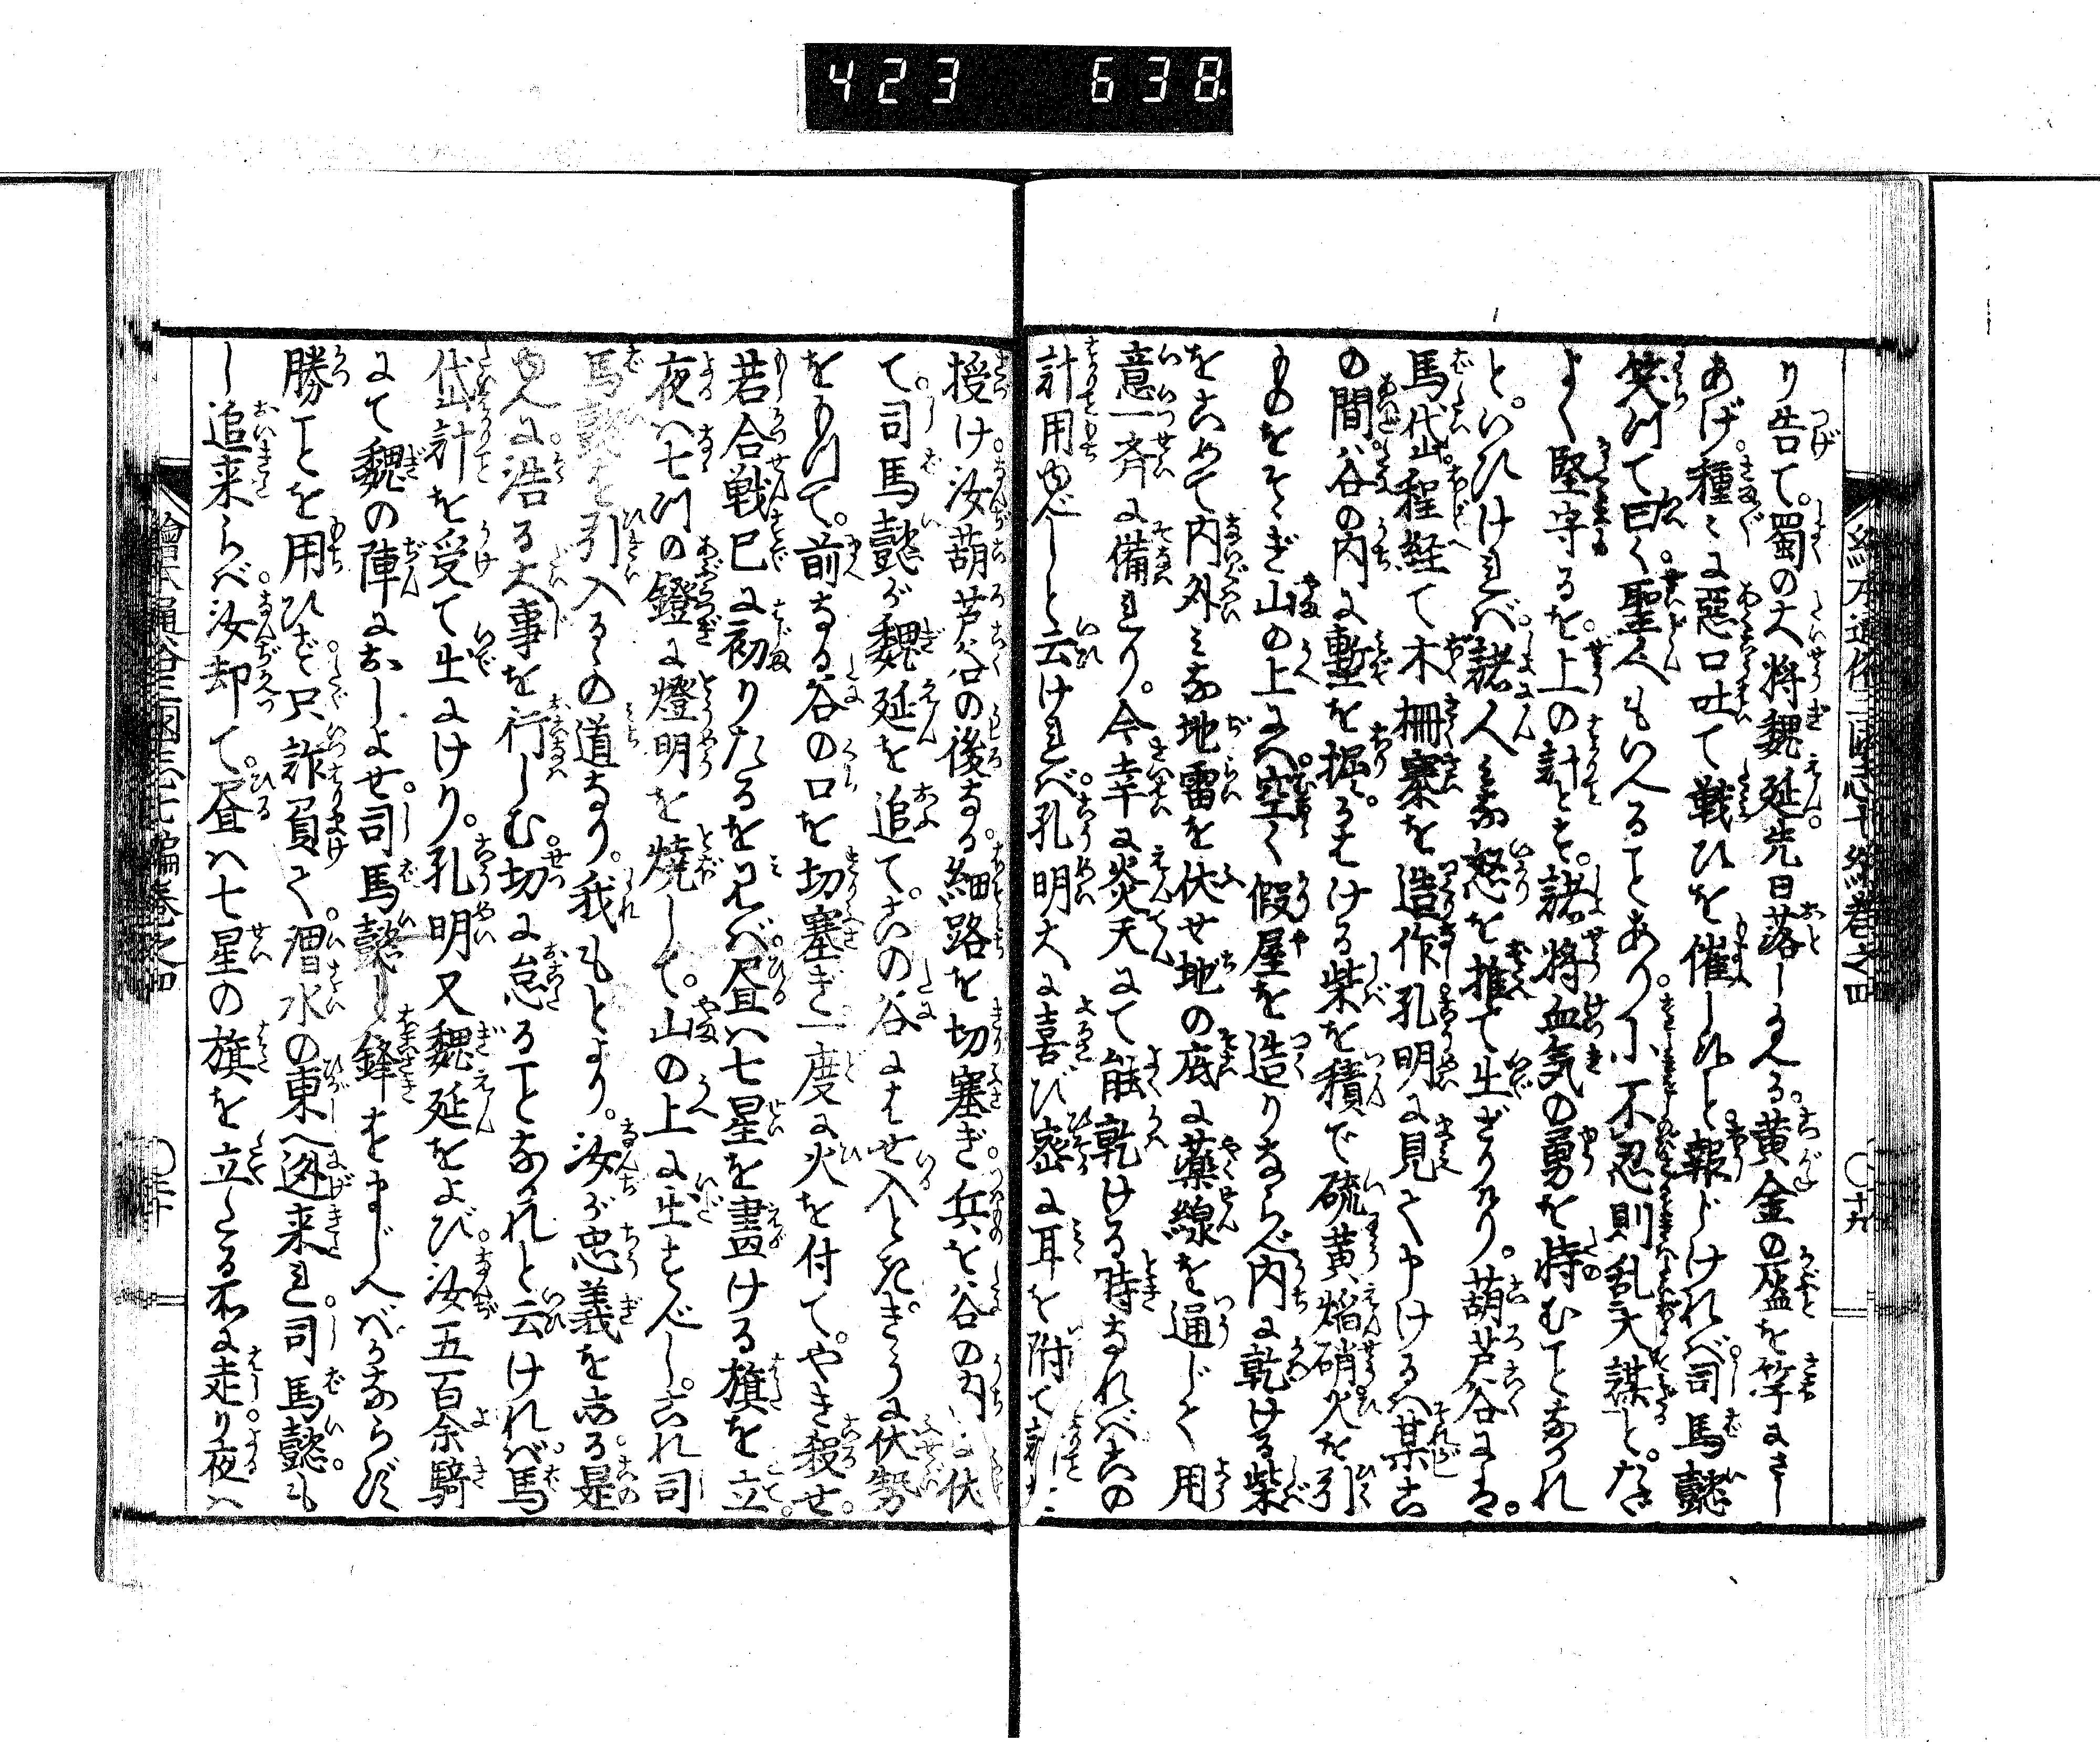 423 638
り告て。蜀の大将魏延。先日落しゝる。黄金の盔を竿にさし
あげ。種〻に惡口吐て戦ひを催しぬと。報じければ司馬懿
笑つて曰く。聖人もいへることあり。小不忍則乱大謀と。たゞ
よく堅守るを。上の計とす。諸将血気の勇を恃むことなかれ
と。いひければ。諸人みな怒を推て出ざりけり。葫芦谷には。
馬岱此程経て木柵寨を造作。孔明に見て申けるは某古
の間。谷の内に塹を掘。るもける柴を積で硫黄焔硝火を引
ものをそゝぎ山の上には空く假屋を造りならべ内に乾ける柴
をこめて内外みな地雷を伏せ地の底に薬線を通じて用
意一斉に備れり。今幸に炎天にて能乾ける時なればこの
計用ゆべしと云ければ。孔明大に喜び密に耳を附て
授け。汝葫芦谷の後なる。細路を切塞ぎ。兵を谷の内に伏
て。司馬懿が魏延を追て。この谷にはせ入ときゝ伏勢
をもつて。前なる谷の口を切塞ぎ一度に火を付て。やき殺せ。
若合戦已に初りたるを見ば。昼は七星を畫ける旗を立
夜は七つの鐙に燈明を焼して。山の上に出すべし。これ司
馬懿を引入るゝの道なり。我もとより。汝が忠義を志る。是
ゆへに浩る大事を行しむ。切に怠ることなかれと云ければ馬
岱計を受て出にけり。孔明又魏延をよび。汝五百余騎
にて魏の陣におしよせ。司馬懿と鋒をまじへばかならず
勝ことを用ひず。只詐負て。渭水の東へ迯来れ。司馬懿も
し追来らば汝却て。昼は七星の旗を立たる所に走り夜は